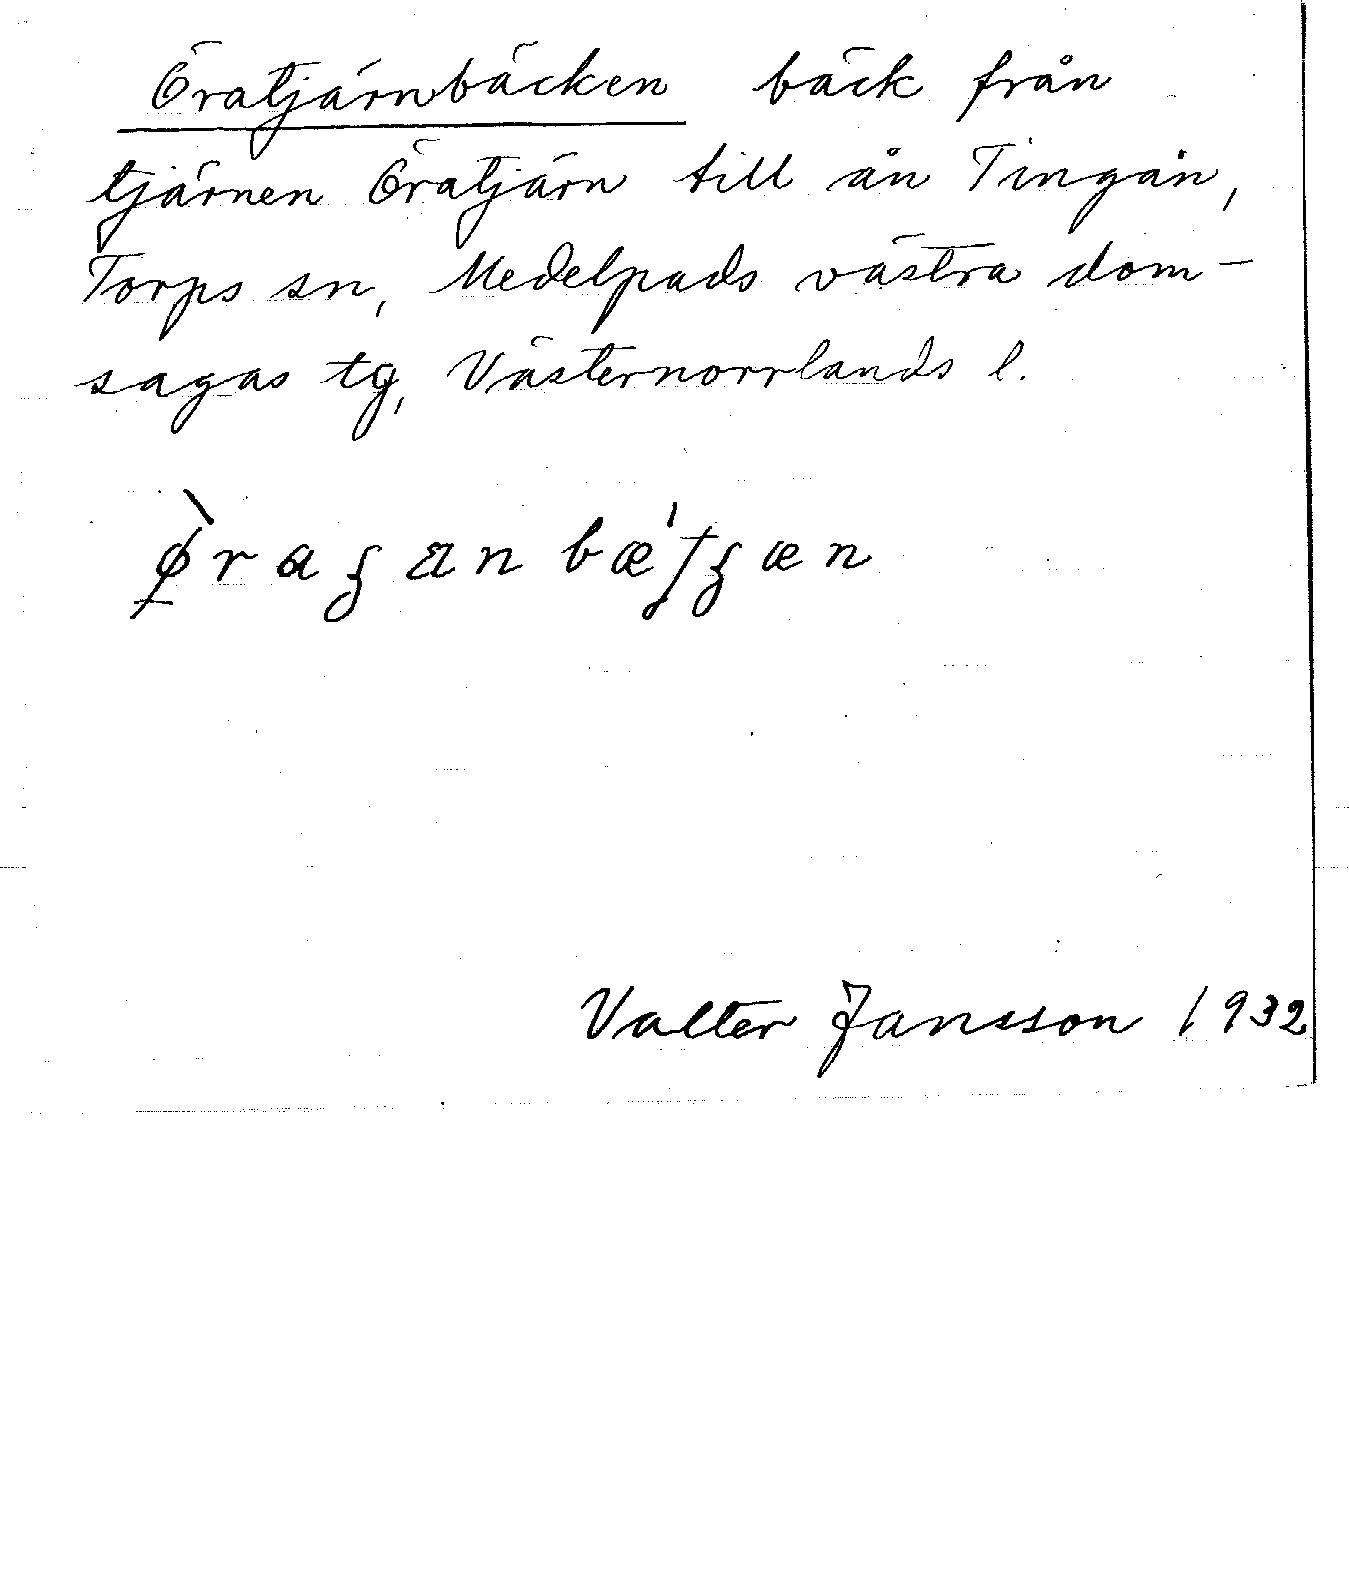 Öratjärnbäcken bäck från
tjärnen Öratjärn till ån Tingån,
Torps sn, Medelpads västra dom-
sagas tg, Västernorrlands l.
Valter Jansson 1932